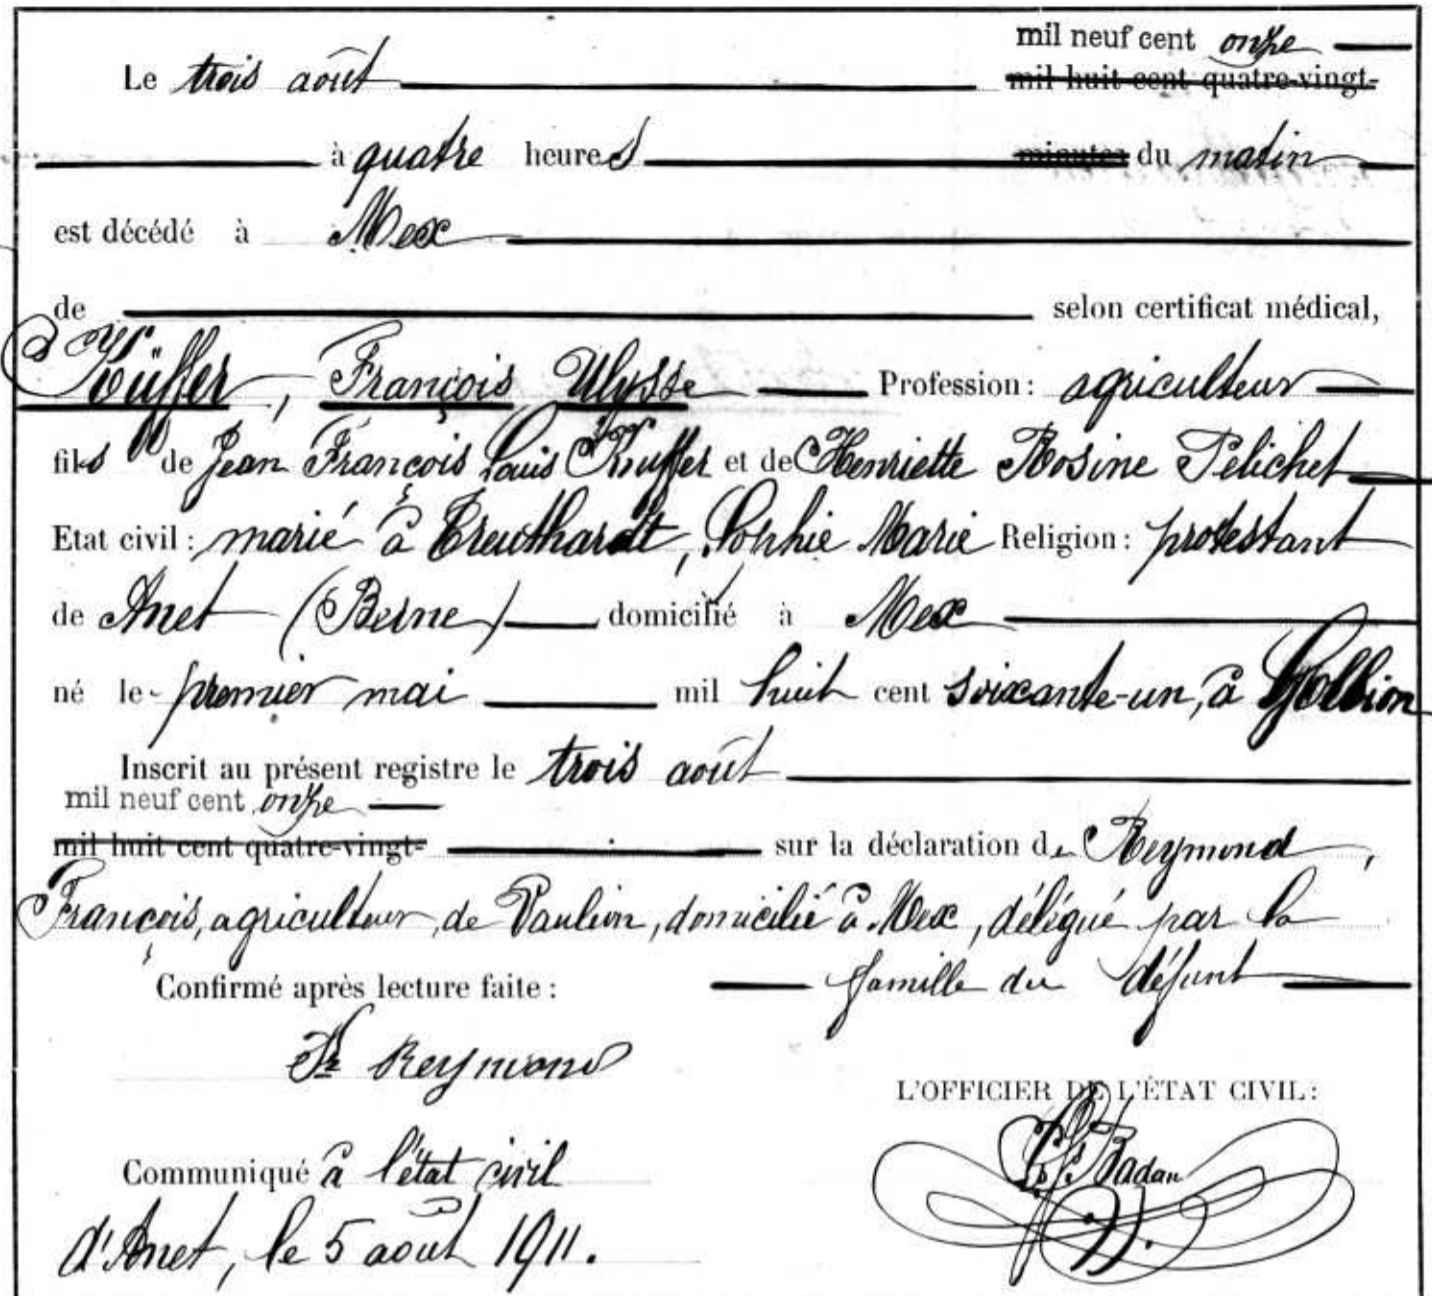 mil neuf cent onze
Le trois août mil huit cent quatre-vingt-
à quatre heures minutes du matin
est décédé à Mex
de selon certificat médical,
Küffer, François Ulysse Profession: agriculteur
fils de Jean François Louis Küffer et de Henriette Rosine Pelichet
Etat civil: marié à Treuthardt, Sophie Marie Religion: protestant
de Anet (Berne) domicilié à Mex
né le premier mai mil huit cent soixante-un, à Gollion
Inscrit au présent registre le trois août
mil neuf cent onze
mil huit cent quatre-vingt- sur la déclaration de Reymond,
François, agriculteur, de Vaulion, domicilié à Mex, délégué par la
Confirmé après lecture faite: famille du défunt
Fs Reymond
L'OFFICIER DE L'ÉTAT CIVIL:
Communiqué à l'état civil
Badan
d'Anet, le 5 août 1911.